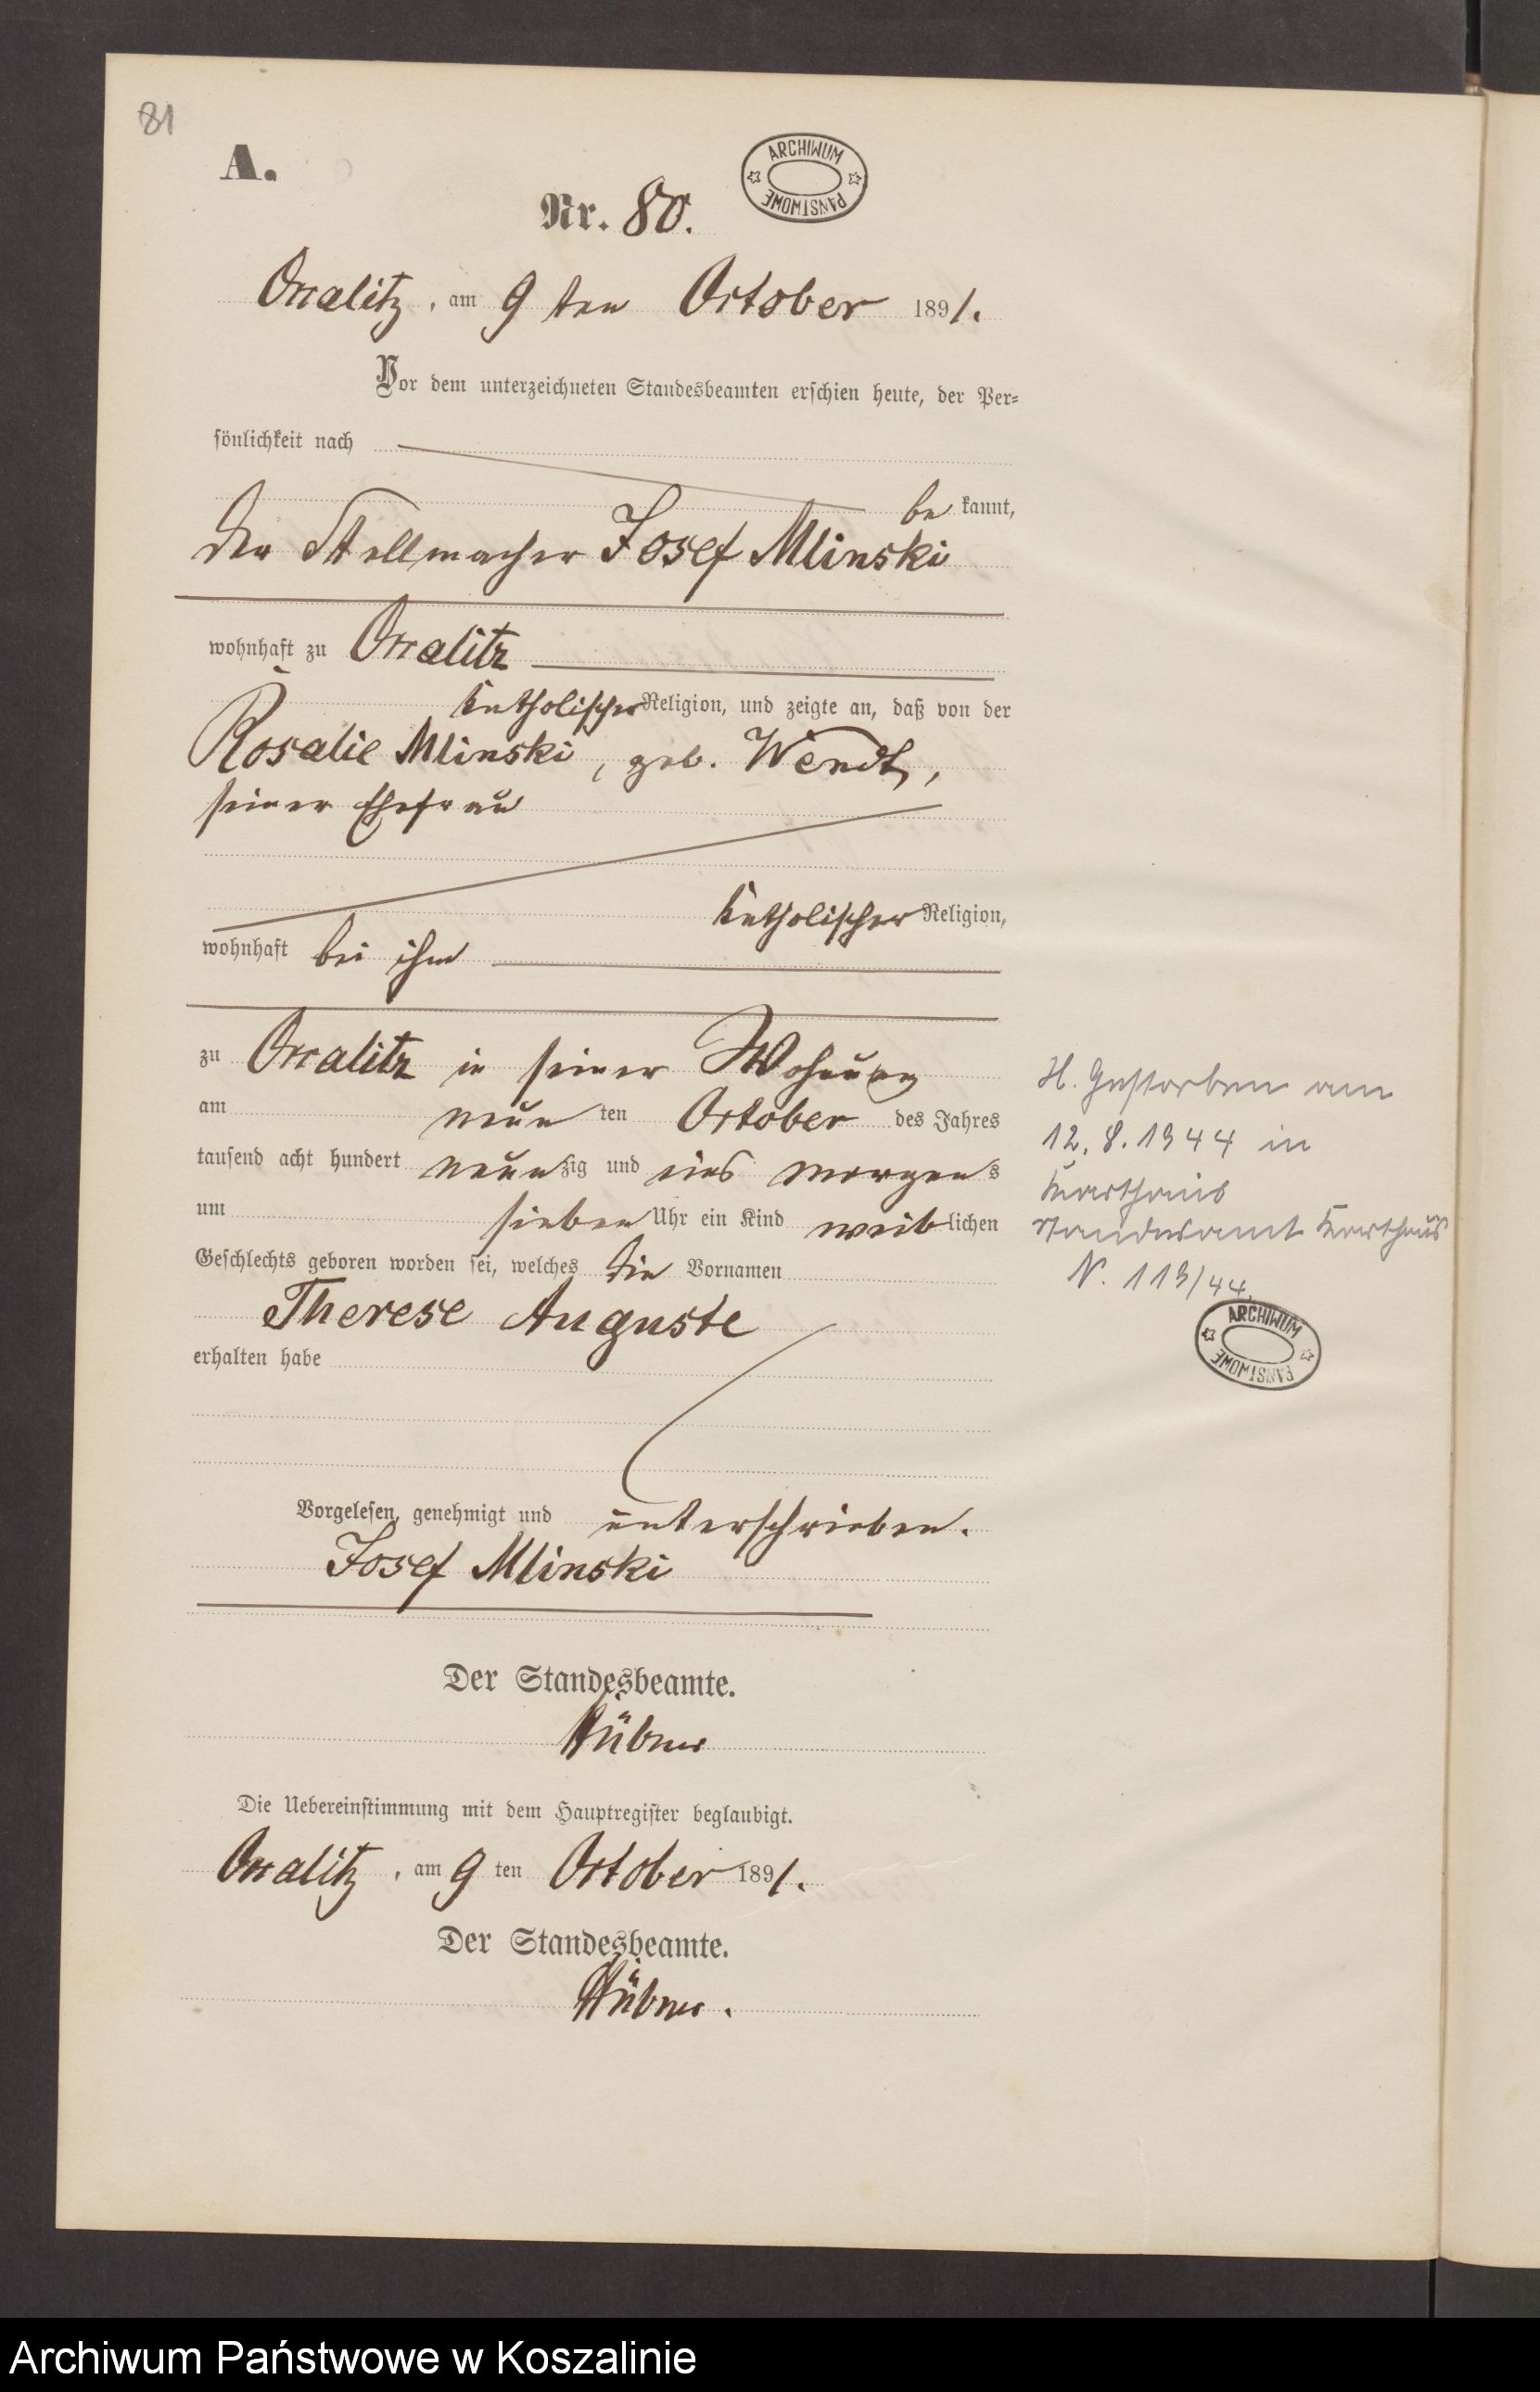 81
A.
ARCHIWUM
PAŃSTWOWE
Nr. 80.
Ossalitz, am 9 ten October 1891.
Vor dem unterzeichneten Standesbeamten erschien heute, der Per=
sönlichkeit nach
be kannt,
der Stellmacher Josef Mlinski
wohnhaft zu Ossalitz
katholischer Religion, und zeigte an, daß von der
Rosalie Mlinski, geb. Wendt,
seiner Ehefrau
katholischer Religion,
wohnhaft bei ihm
zu Ossalitz in seiner Wohnung
am neun ten October des Jahres
tausend acht hundert neunzig und eins morgens
um sieben Uhr ein Kind weiblichen
Geschlechts geboren worden sei, welches die Vornamen
Therese Auguste
erhalten habe
Vorgelesen, genehmigt und unterschrieben.
Josef Mlinski
Der Standesbeamte.
Hübner
Die Uebereinstimmung mit dem Hauptregister beglaubigt.
Ossalitz, am 9 ten October 1891.
Der Standesbeamte.
Hübner.
H. Gestorben am
12.8.1944 in
Karthaus
Standesamt Karthaus
N. 113/44.
ARCHIWUM
PAŃSTWOWE
Archiwum Państwowe w Koszalinie